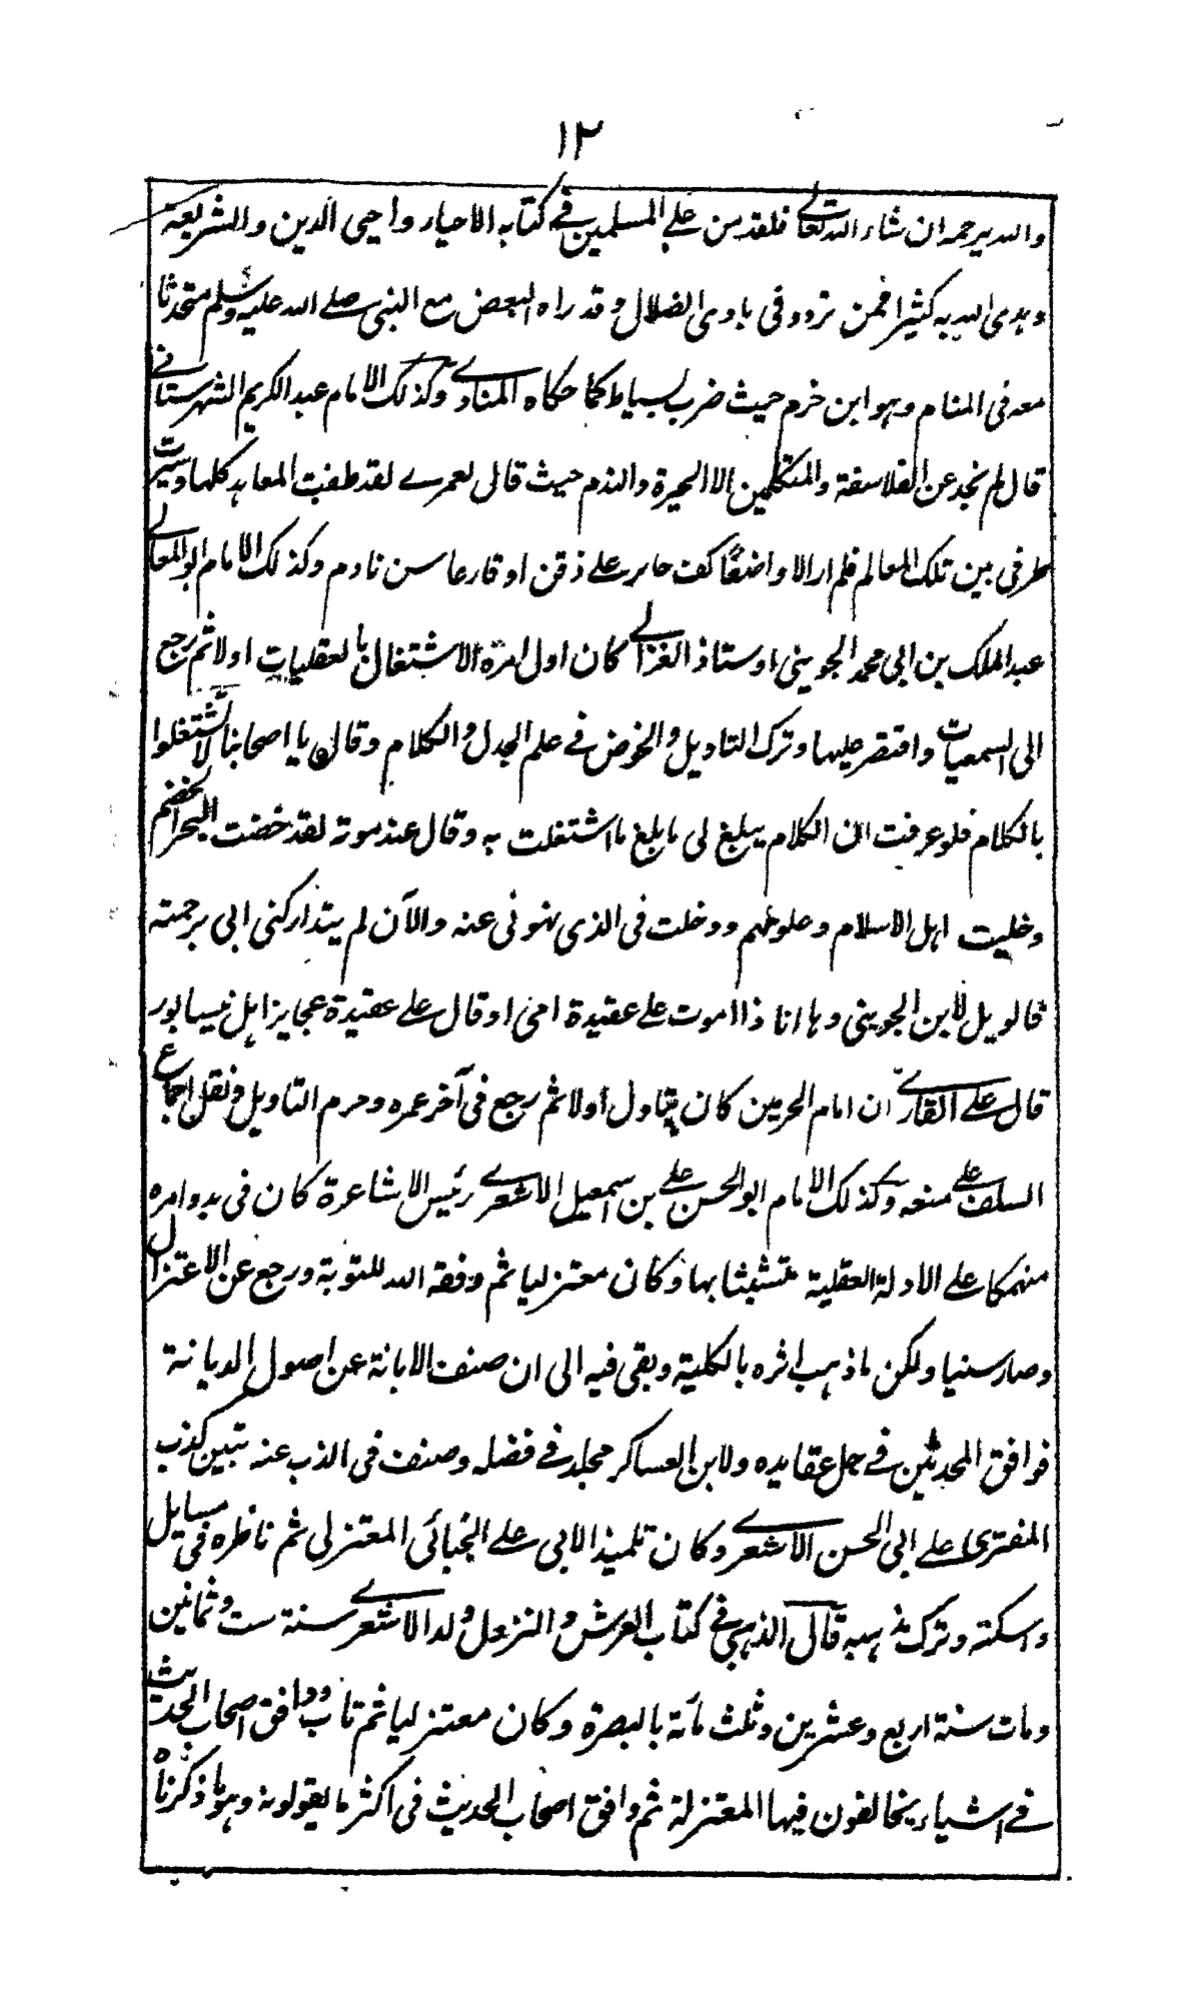 ١٢
والله يرحمه ان شاء الله تعالى فلقد من على المسلمين في كتابه الاحياء واحيى الدين والشريعة
وهدى الله به كثيرا فمن تردد في بادى الضلال وقد راه البعض مع النبى صلے الله عليه وسلم متحدثا
معه في المنام وهو ابن خرم حيث ضرب بسياط كما حكاه المناوے وكذلك الامام عبد الكريم الشهرستانے
قال لم نجد عن الفلاسفة والمتكلمين الا الحيرة والندم حيث قال لعمرے لقد طفت المعاهد كلها وسيرت
طرفى بين تلك المعالم فلم ار الا واضعًا كف حاير على ذقن او قارعا سن نادم وكذلك الامام ابو المعالے
عبد الملك بن ابى محمد الجوينى اوستاذ الغزالے كان اول امره الاشتغال بالعقليات اولا ثم رجع
الى السمعيات واقتصر عليها وترك التاويل والخوض في علم الجدل والكلام وقال يا اصحابنا لا تشتغلوا
بالكلام فلو عرفت ان الكلام يبلغ لى ما بلغ ما اشتغلت به وقال عند موته لقد خضت البحر الخضم
وخليت اهل الاسلام وعلومهم ودخلت في الذى نهونى عنه والآن لم يتداركنى ابى برحمته
فالويل لابن الجوينى وها انا ذا اموت على عقيدة امى او قال على عقيدة عجايز اهل نيسابور
قال على القارے ان امام الحرمين كان يتاول اولا ثم رجع في آخر عمره وحرم التاويل ونقل اجماع
السلف على منعه وكذلك الامام ابو الحسن على بن اسمعيل الاشعرے رئيس الاشاعرة كان في بدو امره
منهمكا على الادلة العقلية متشبثا بها وكان معتزليا ثم وفقه الله للتوبة ورجع عن الاعتزال
وصار سنيا ولكن ما ذهب اثره بالكلية وبقى فيه الى ان صنف الابانة عن اصول الديانة
فوافق المحدثين في جل عقايده ولابن العساكر مجلد في فضله وصنف في الذب عنه تبيين كذب
المفترى على ابى الحسن الاشعرے وكان تلميذ الابى على الجبائى المعتزلى ثم ناظره في مسايل
واسكته وترك مذهبه قال الذهبي في كتاب العرش والنزول ولد الاشعرے سنة ست وثمانين
ومات سنة اربع وعشرين وثلث مائة بالبصرة وكان معتزليا ثم تاب ووافق اصحاب الحديث
في اشياء يخالفون فيها المعتزلة ثم وافق اصحاب الحديث في اكثر ما يقولونه وهو ما ذكرناه